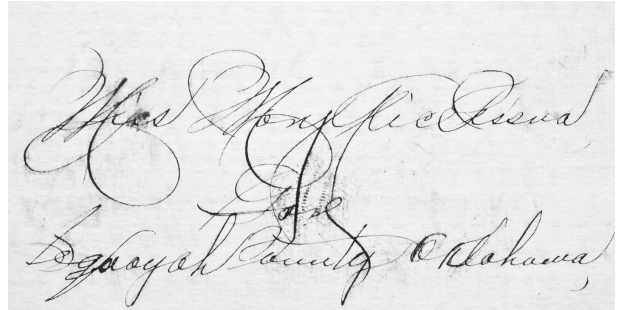 Miss Mony
Gore
Sequoyah County Oklahoma,